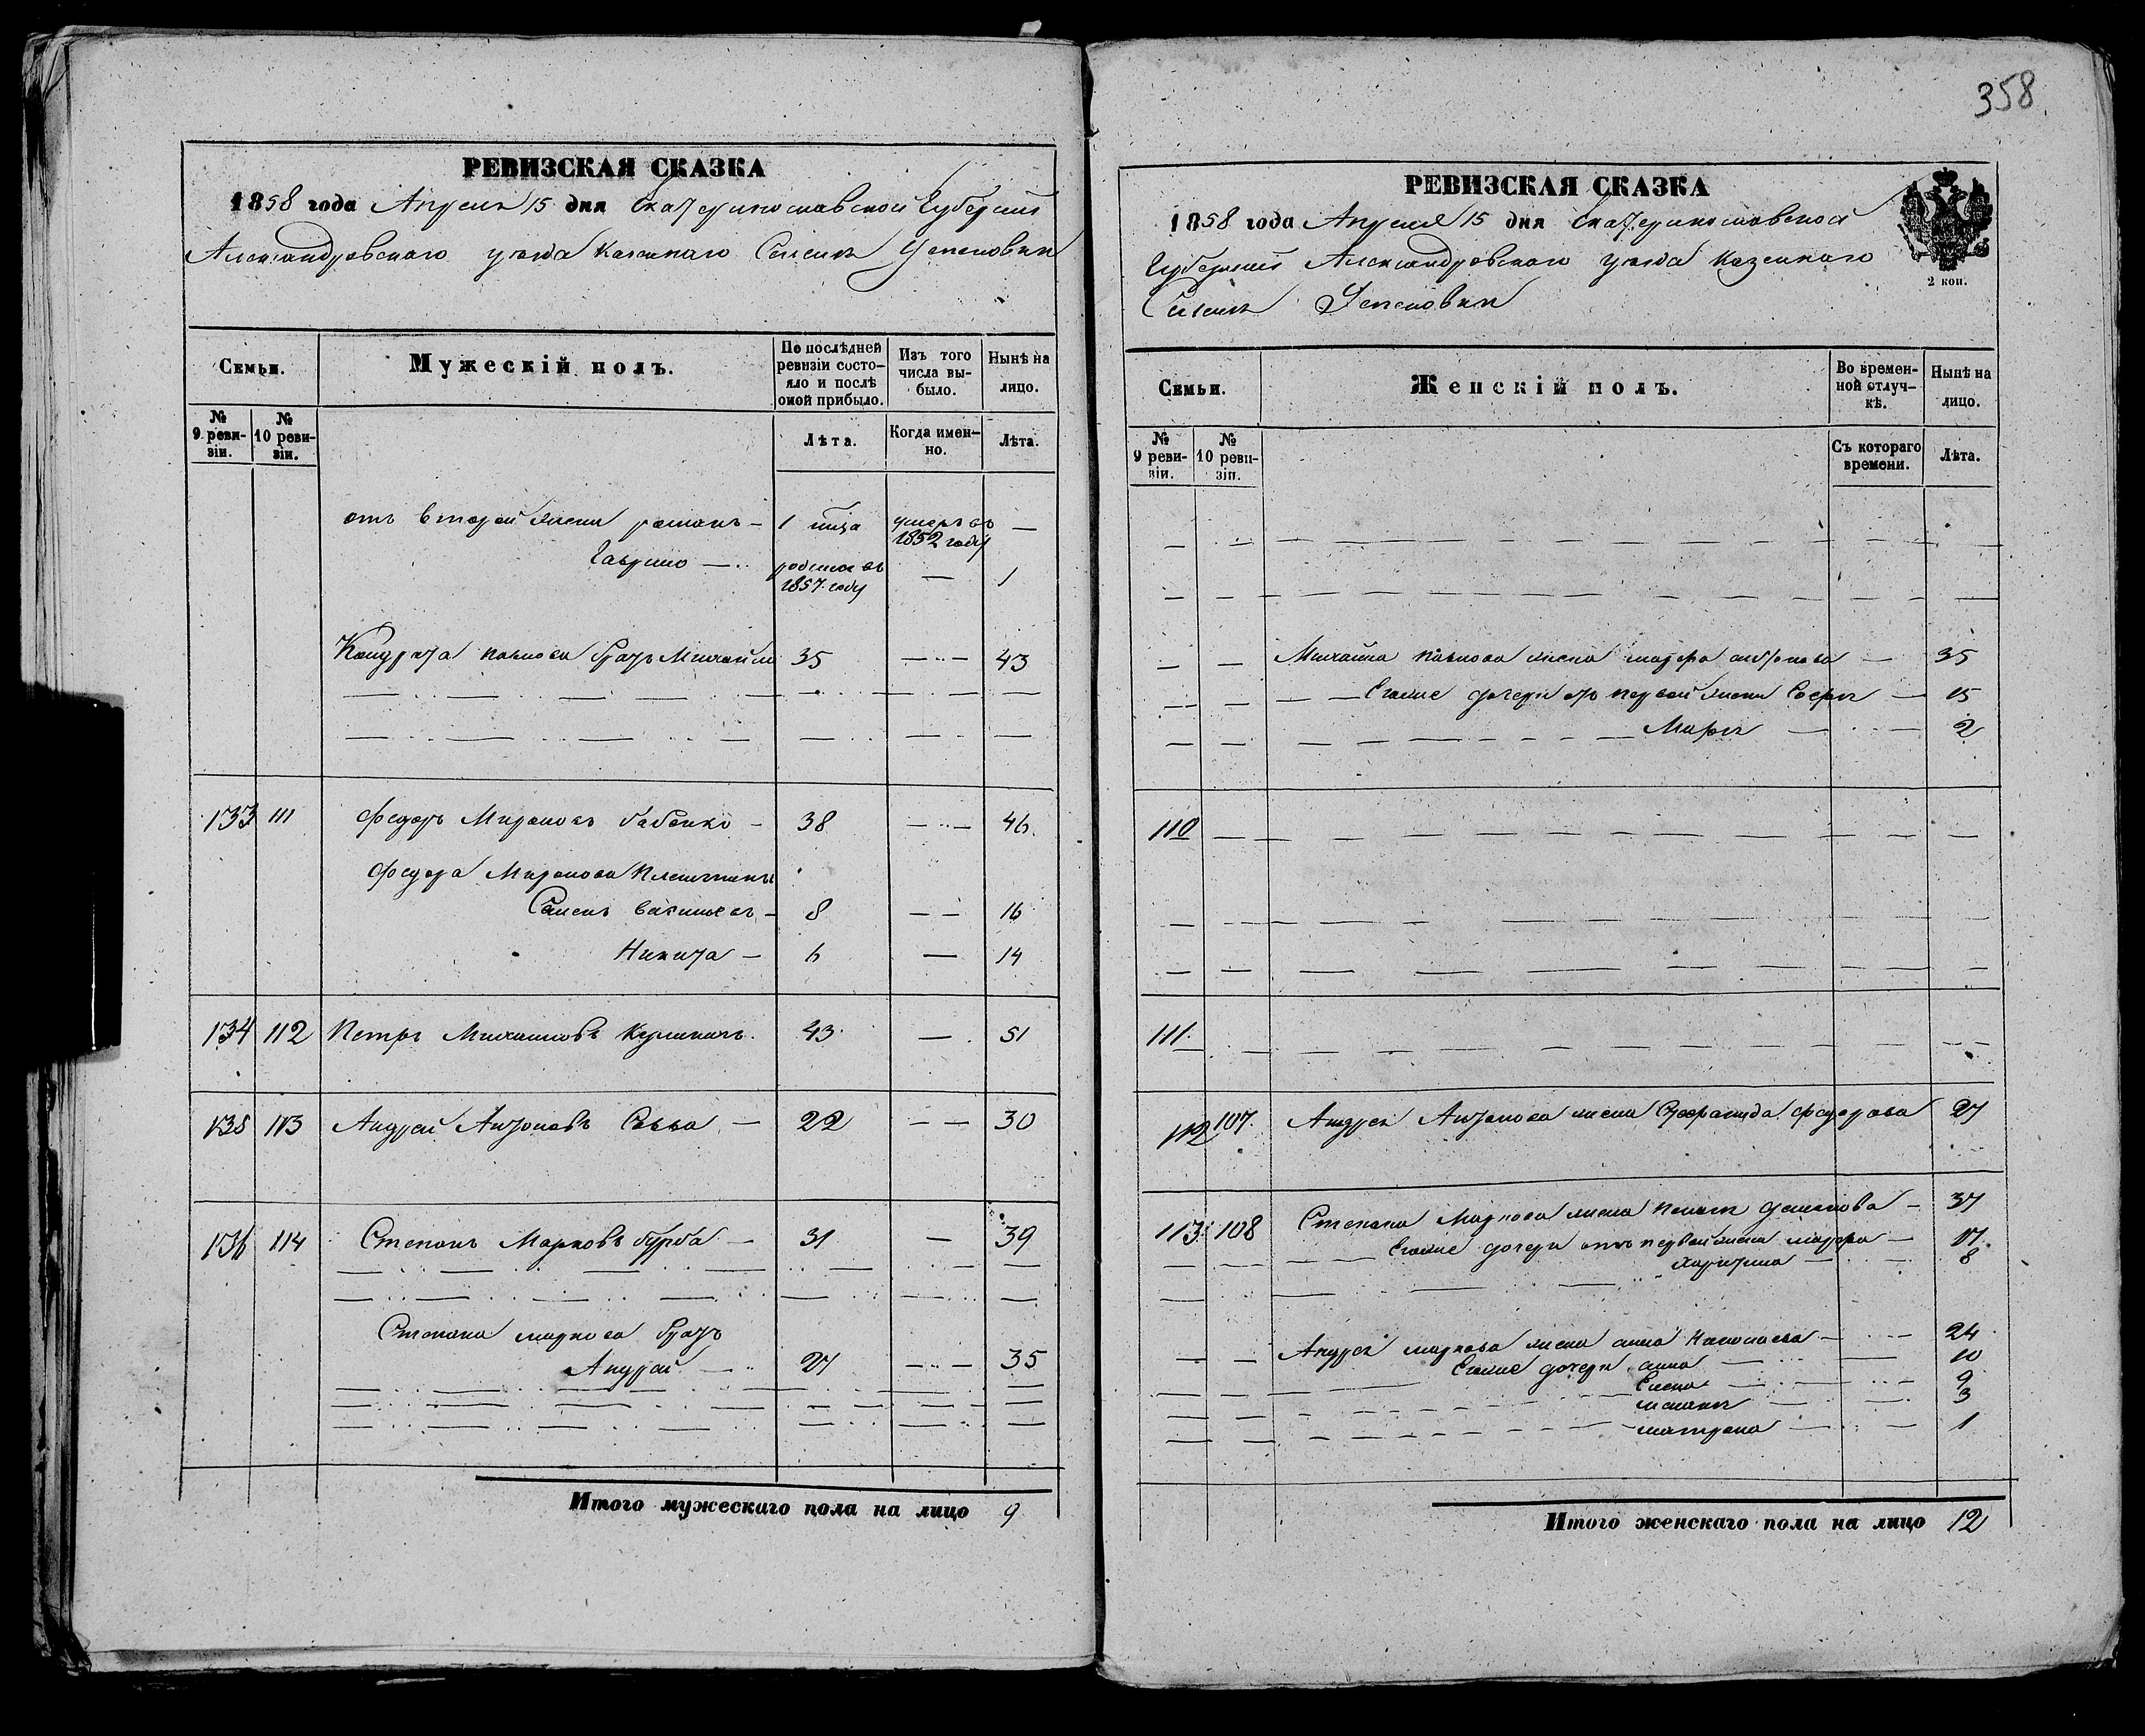 358
РЕВИЗСКАЯ СКАЗКА
1858 года Апреля 15 дня Екатеринославской Губернии
Александровского уезда казенного Селения Успеновки
Семьи.
Мужескій полъ.
По послѣдней ревизіи состояло и послѣ оной прибыло.
Изъ того числа выбыло.
Нынѣ на лицо.
№ 9 ревизіи.
№ 10 ревизіи.
Лѣта.
Когда именно.
Лѣта.
отъ второй жены романъ — 1 умеръ въ 1852 году —
Гаврило — родился въ 1857 году — 1
Кондрата Павлова братъ Михайло 35 — 43
133 111 Федоръ Мироновъ бабенко — 38 — 46
Федора Миронова племянники
Семенъ — 8 — 16
Никита — 6 — 14
134 112 Петръ Михайловъ 43 — 51
135 113 Андрей Антоновъ Савва — 22 — 30
136 114 Степанъ Марковъ бурба — 31 — 39
Степана маркова братъ
Андрей — 27 — 35
Итого мужескаго пола на лицо 9
РЕВИЗСКАЯ СКАЗКА
1858 года Апреля 15 дня Екатеринославской
Губернии Александровского уезда казенного
Селения Успеновки
2 коп.
Семьи.
Женскій полъ.
Во временной отлучкѣ.
Нынѣ на лицо.
№ 9 ревизіи.
№ 10 ревизіи.
Съ котораго времени.
Лѣта.
Михайла Павлова жена марфа антонова — 35
Егоже дочери отъ первой жены — 15
Марья — 2
110
111.
112 107. Андрея Антонова жена Федорова 27
113 108 Степана Маркова жена — 37
Егоже дочери отъ первой жены марфа — 17
харитина — 8
Андрея маркова жена анна — 24
Егоже дочери анна — 10
Елена — 9
3
матрена — 1
Итого женскаго пола на лицо 12